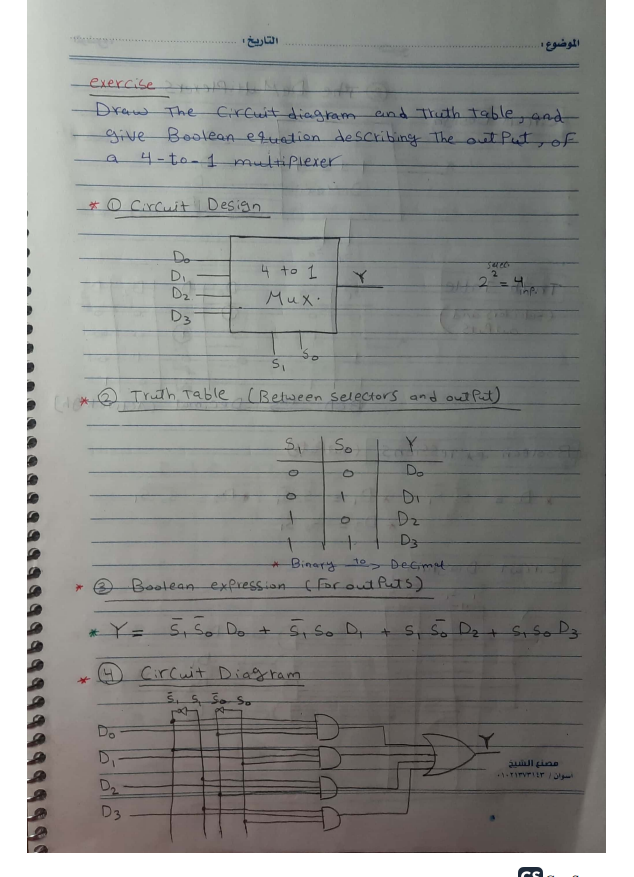 الموضوع: التاريخ:
exercise
Draw The Circuit diagram and Truth Table, and
give Boolean equation describing The outPut, of
a 4-to-1 multiplexer
* ① Circuit Design
D0
D1
D2
D3
4 to 1
Mux.
Y
S1 S0
2² = 4 inp.
* ② Truth Table (Between selectors and outPut)
S1 S0 Y
0 0 D0
0 1 D1
1 0 D2
1 1 D3
* Binary to> Decimal
* ③ Boolean expression (For outPuts)
* Y = S̄1 S̄0 D0 + S̄1 S0 D1 + S1 S̄0 D2 + S1 S0 D3
* ④ Circuit Diagram
S̄1 S1 S̄0 S0
D0
D1
D2
D3
Y
اسوان / ٠١٠٢١٣٧٣١٤٣
CS